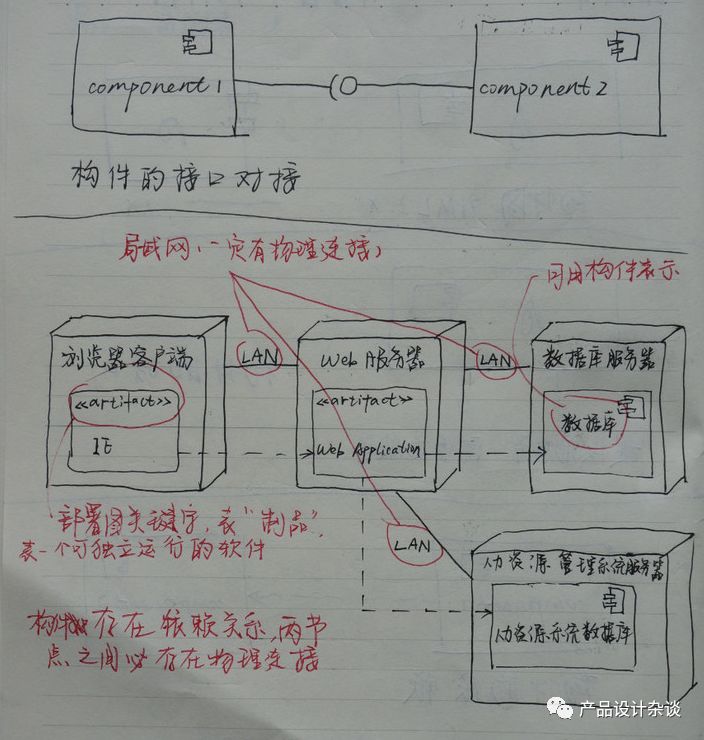 component1
component2
构件的接口对接
局域网,一定有物理连接,
可用构件表示
浏览器客户端
LAN
Web服务器
LAN
数据库服务器
<<artifact>>
IE
<<artifact>>
Web Application
数据库
部署图关键字,表"制品",
表一个可独立运行的软件
LAN
人力资源管理系统服务器
人力资源系统数据库
构件 存在依赖关系,两节
点之间必存在物理连接
产品设计杂谈